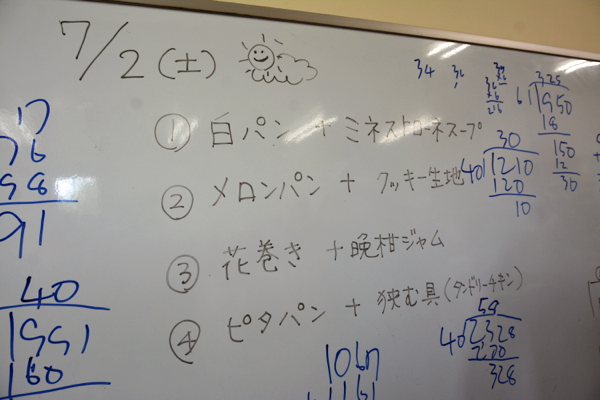 7/2(土)
① 白パン + ミネストローネスープ
② メロンパン + クッキー生地
③ 花巻き + 晩柑ジャム
④ ピタパン + 狭む具(タンドリーチキン)
34
36
325
61950
18
150
12
30
30
40 1210
120
10
17
76
98
91
40
1991
160
59
40 2328
200
328